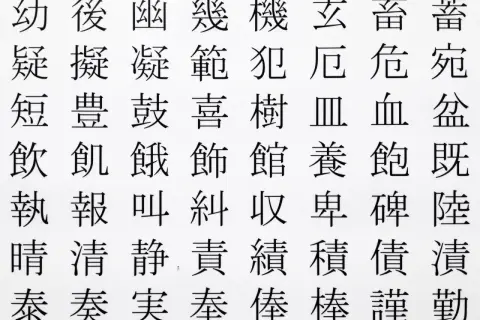 幼 後 幽 幾 機 玄 畜 蓄
疑 擬 凝 範 犯 厄 危 宛
短 豊 鼓 喜 樹 皿 血 盆
飲 飢 餓 飾 館 養 飽 既
執 報 叫 糾 収 卑 碑 陸
晴 清 静 責 績 積 債 漬
泰 奏 実 奉 俸 棒 謹 勤